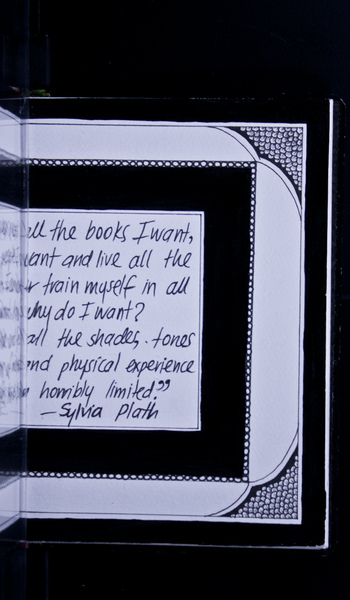 all the books I want,
want and live all the
train myself in all
why do I want?
all the shades, tones
and physical experience
horribly limited."
—Sylvia Plath